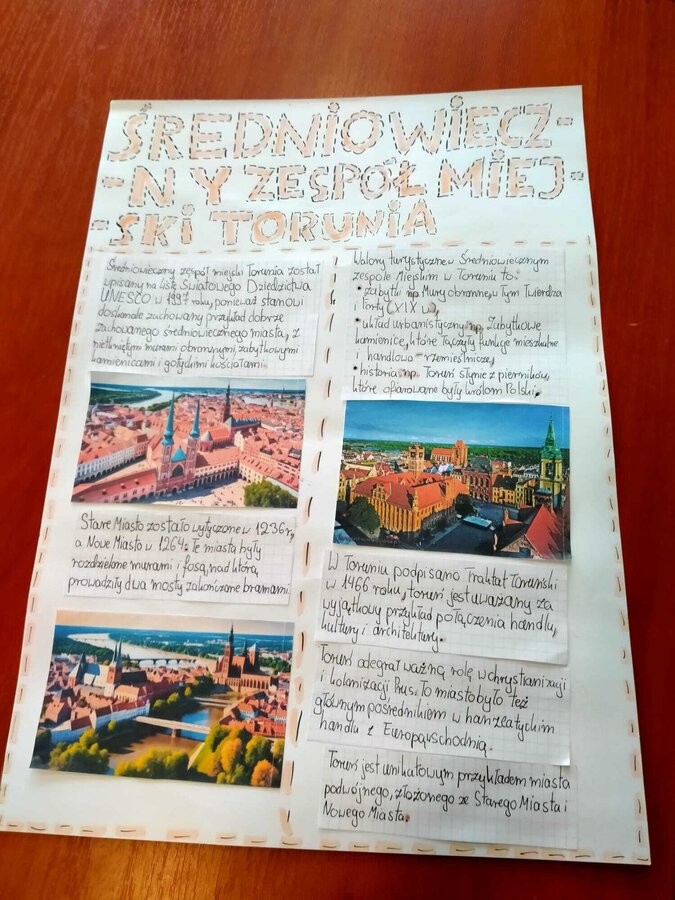 ŚREDNIOWIECZ-
-NY ZESPÓŁ MIEJ-
-SKI TORUNIA
Średniowieczny zespół miejski Torunia został
wpisany na listę Światowego Dziedzictwa
UNESCO w 1997 roku, ponieważ stanowi
doskonale zachowany przykład dobrze
zachowanego średniowiecznego miasta, z
nietkniętymi murami obronnymi, zabytkowymi
kamienicami i gotyckimi kościołami.
Stare Miasto zostało wytyczone w 1236r,
a Nowe Miasto w 1264r. Te miasta były
rozdzielone murami i fosą, nad którą
prowadziły dwa mosty zakończone bramami.
Walory turystyczne w Średniowiecznym
zespole Miejskim w Toruniu to:
• zabytki np. Mury obronne, w Tym Twierdza
i Forty (XIX w),
• układ urbanistyczny np. Zabytkowe
kamienice, które łączyły funkcje mieszkalne
i handlowo-rzemieślnicze,
• historia np. Toruń słynie z pierników,
które ofiarowane były królom Polski.
W Toruniu podpisano Traktat Toruński
w 1466 roku, toruń jest uważany za
wyjątkowy przykład połączenia handlu,
kultury i architektury.
Toruń odegrał ważną rolę w chrystianizacji
i kolonizacji Prus. To miasto było też
głównym pośrednikiem w hanzeatyckim
handlu z Europą wschodnią.
Toruń jest unikatowym przykładem miasta
podwójnego, złożonego ze Starego Miasta i
Nowego Miasta.